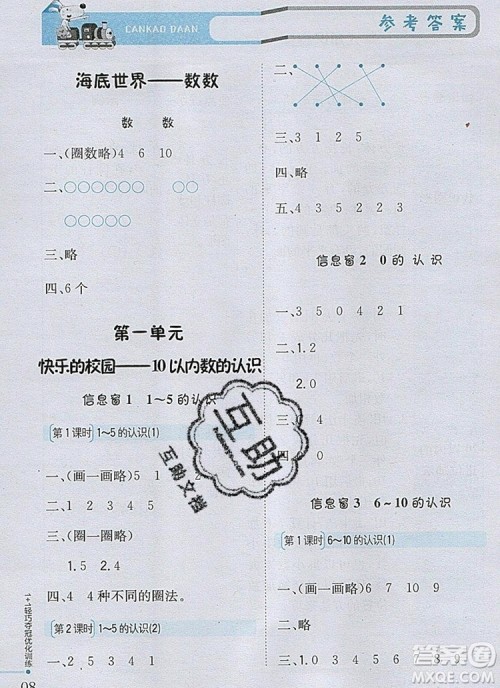 CANKAO DAAN
参考答案
海底世界——数数
数 数
一、(圈数略)4 6 10
二、○○○○○○ ○○
○○○○○
三、略
四、6个
第一单元
快乐的校园——10以内数的认识
信息窗1 1~5的认识
第1课时 1~5的认识(1)
一、(画一画略)5 1
二、1 2 3 4 5
三、(圈一圈略)
1.5 2.4
四、4 4种不同的圈法。
第2课时 1~5的认识(2)
一、3 5 2 4 1
二、
三、3 1 2 5
四、略
五、4 3 5 2 2 1
信息窗2 0的认识
一、3 2 1 0
二、4 0 1 2
三、1.0
2.0
四、0
信息窗3 6~10的认识
第1课时 6~10的认识(1)
一、(画一画略)6 7 9 10
二、8 7 9 6
三、1
8 9
互助
互助文档
1+1轻巧夺冠优化训练
98
答案圈
MXQE.COM